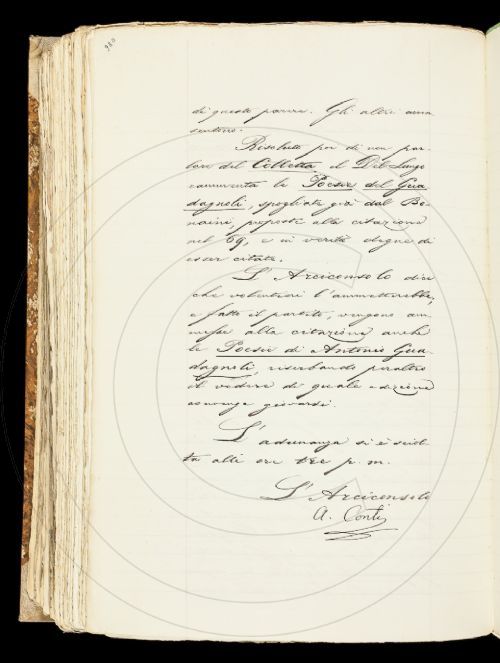 980
di questo parere. Gli altri accon
sentono.
Risoluto poi di non par-
lare del Colletta, il Del Lungo
rammenta le Poesie del Gua
dagnoli, spogliate già dal Bo-
naini, proposte alla citazione
nel 69, e in verità degne di
esser citate.
L'Arciconsolo dice
che volentieri l'ammetterebbe,
e fatto il partito, vengono am
messe alla citazione anche
le Poesie di Antonio Gua
dagnoli, riserbando peraltro
il vedere di quale edizione
convenga giovarsi.
L'adunanza si è sciol-
ta alle ore tre p. m.
L'Arciconsolo
A. Conti